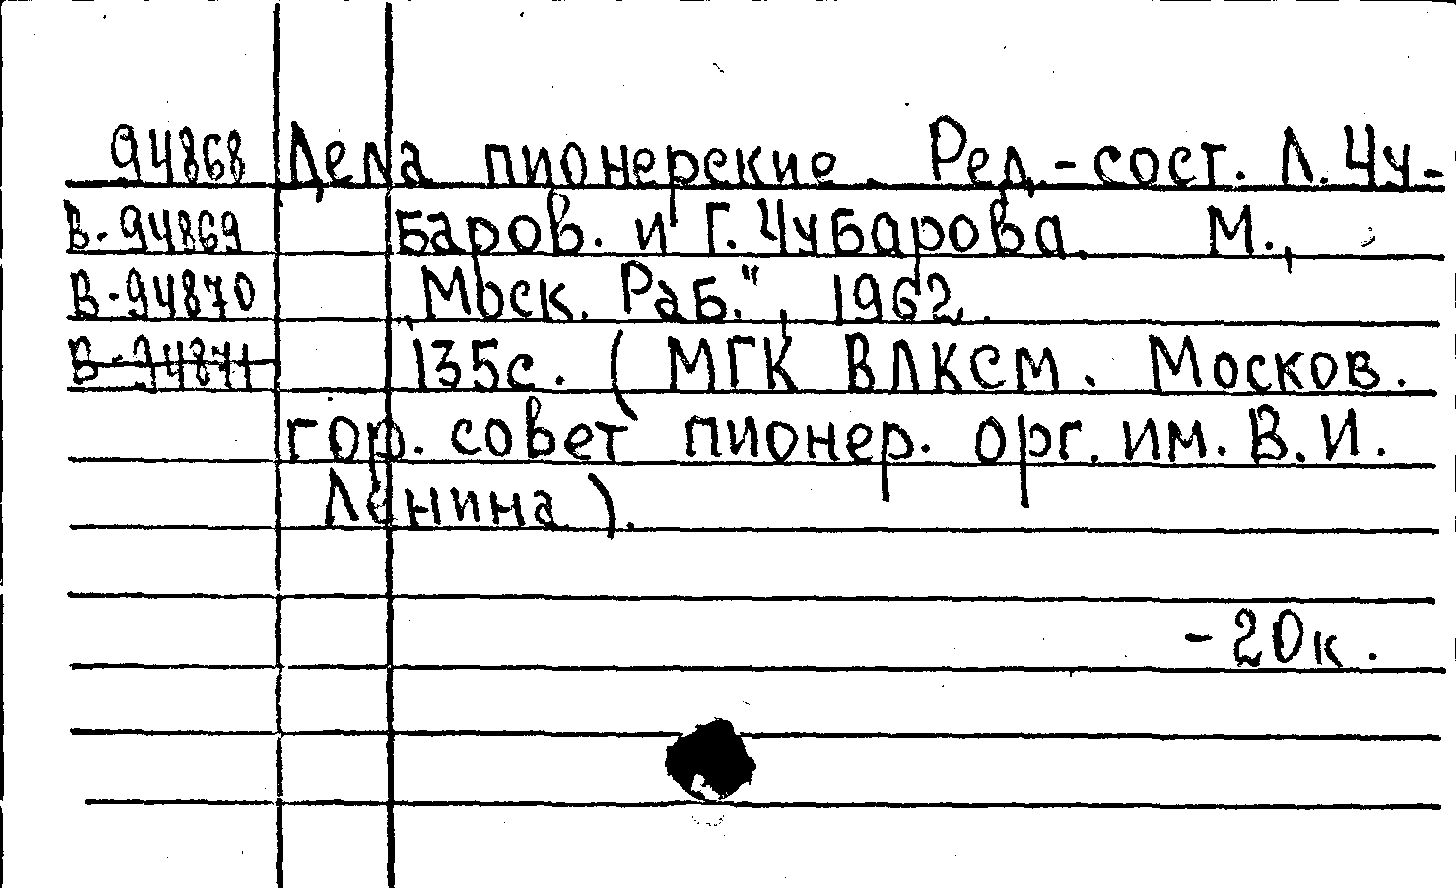 94868 Дела пионерские. Ред.-сост. Л. Чу-
В-94869 баров. и Г. Чубарова. М.,
В-94870 „Моск. Раб.", 1962.
В-94871 135с. (МГК ВЛКСМ. Москов.
гор. совет пионер. орг. им. В. И.
Ленина).
-20к.